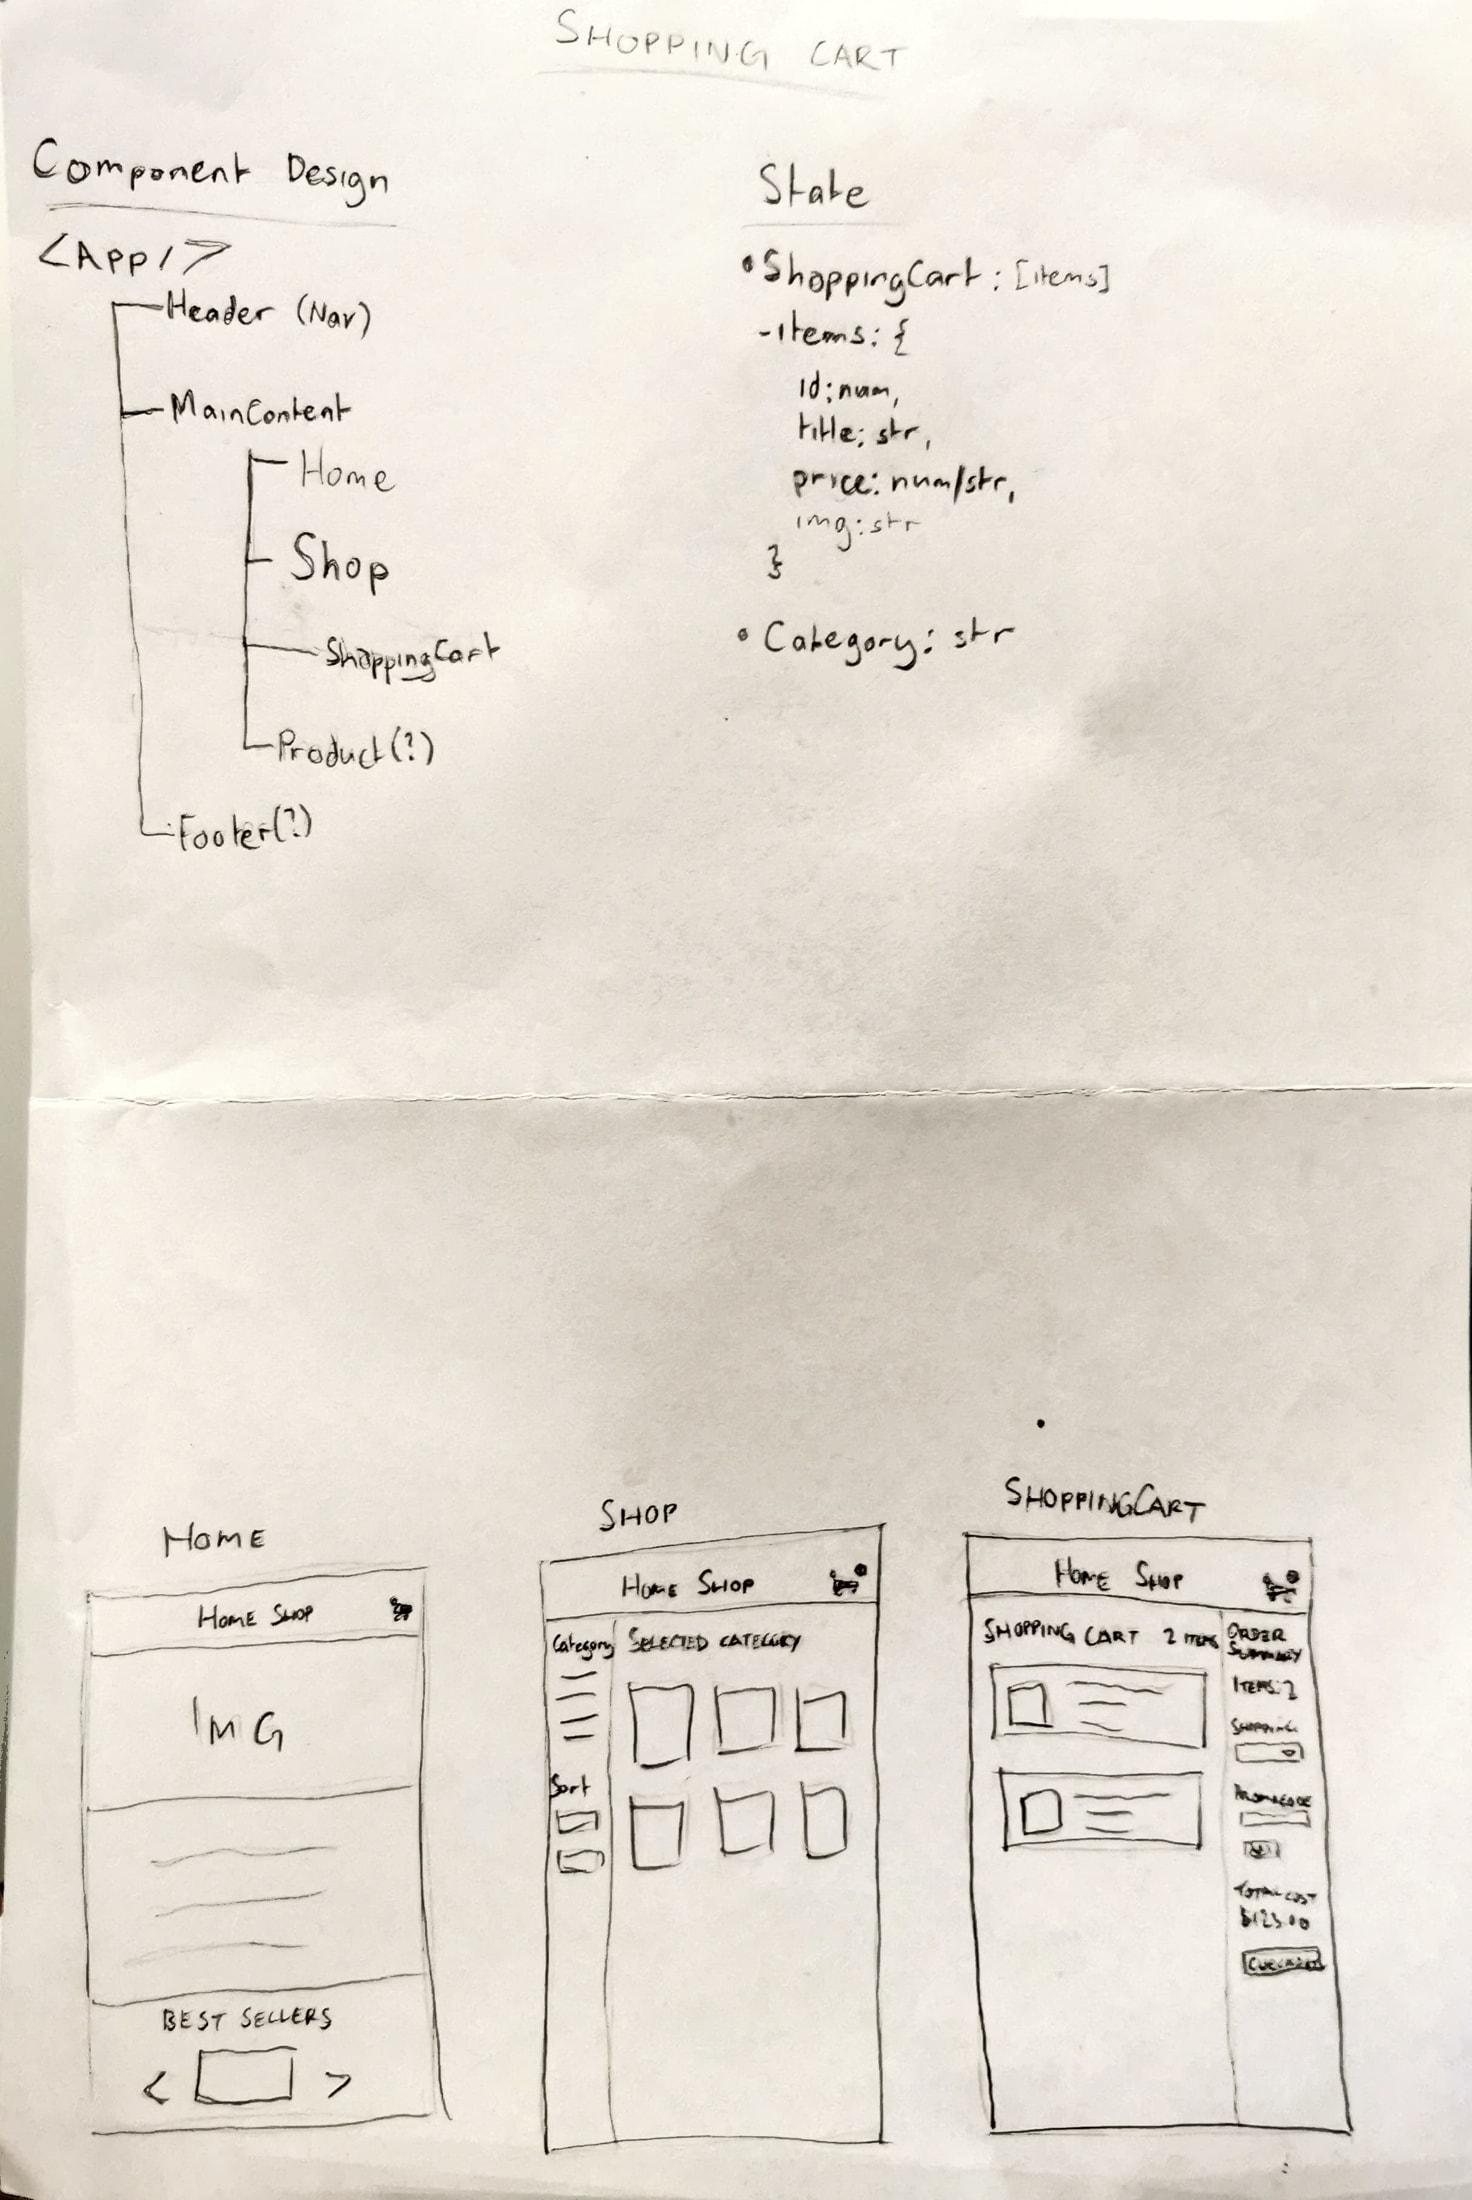 SHOPPING CART
Component Design
<APP/>
Header (Nav)
MainContent
Home
Shop
ShoppingCart
Product(?)
Footer(?)
State
• ShoppingCart: [items]
- items: {
id: num,
title: str,
price: num/str,
img: str
}
• Category: str
HOME
HOME SHOP
IMG
BEST SELLERS
< >
SHOP
HOME SHOP
Category
SELECTED CATEGORY
Sort
SHOPPINGCART
HOME SHOP
SHOPPING CART 2 ITEMS
ORDER
SUMMARY
ITEMS: 2
SHIPPING
PROMOCODE
TOTAL COST
$123.00
CHECKOUT